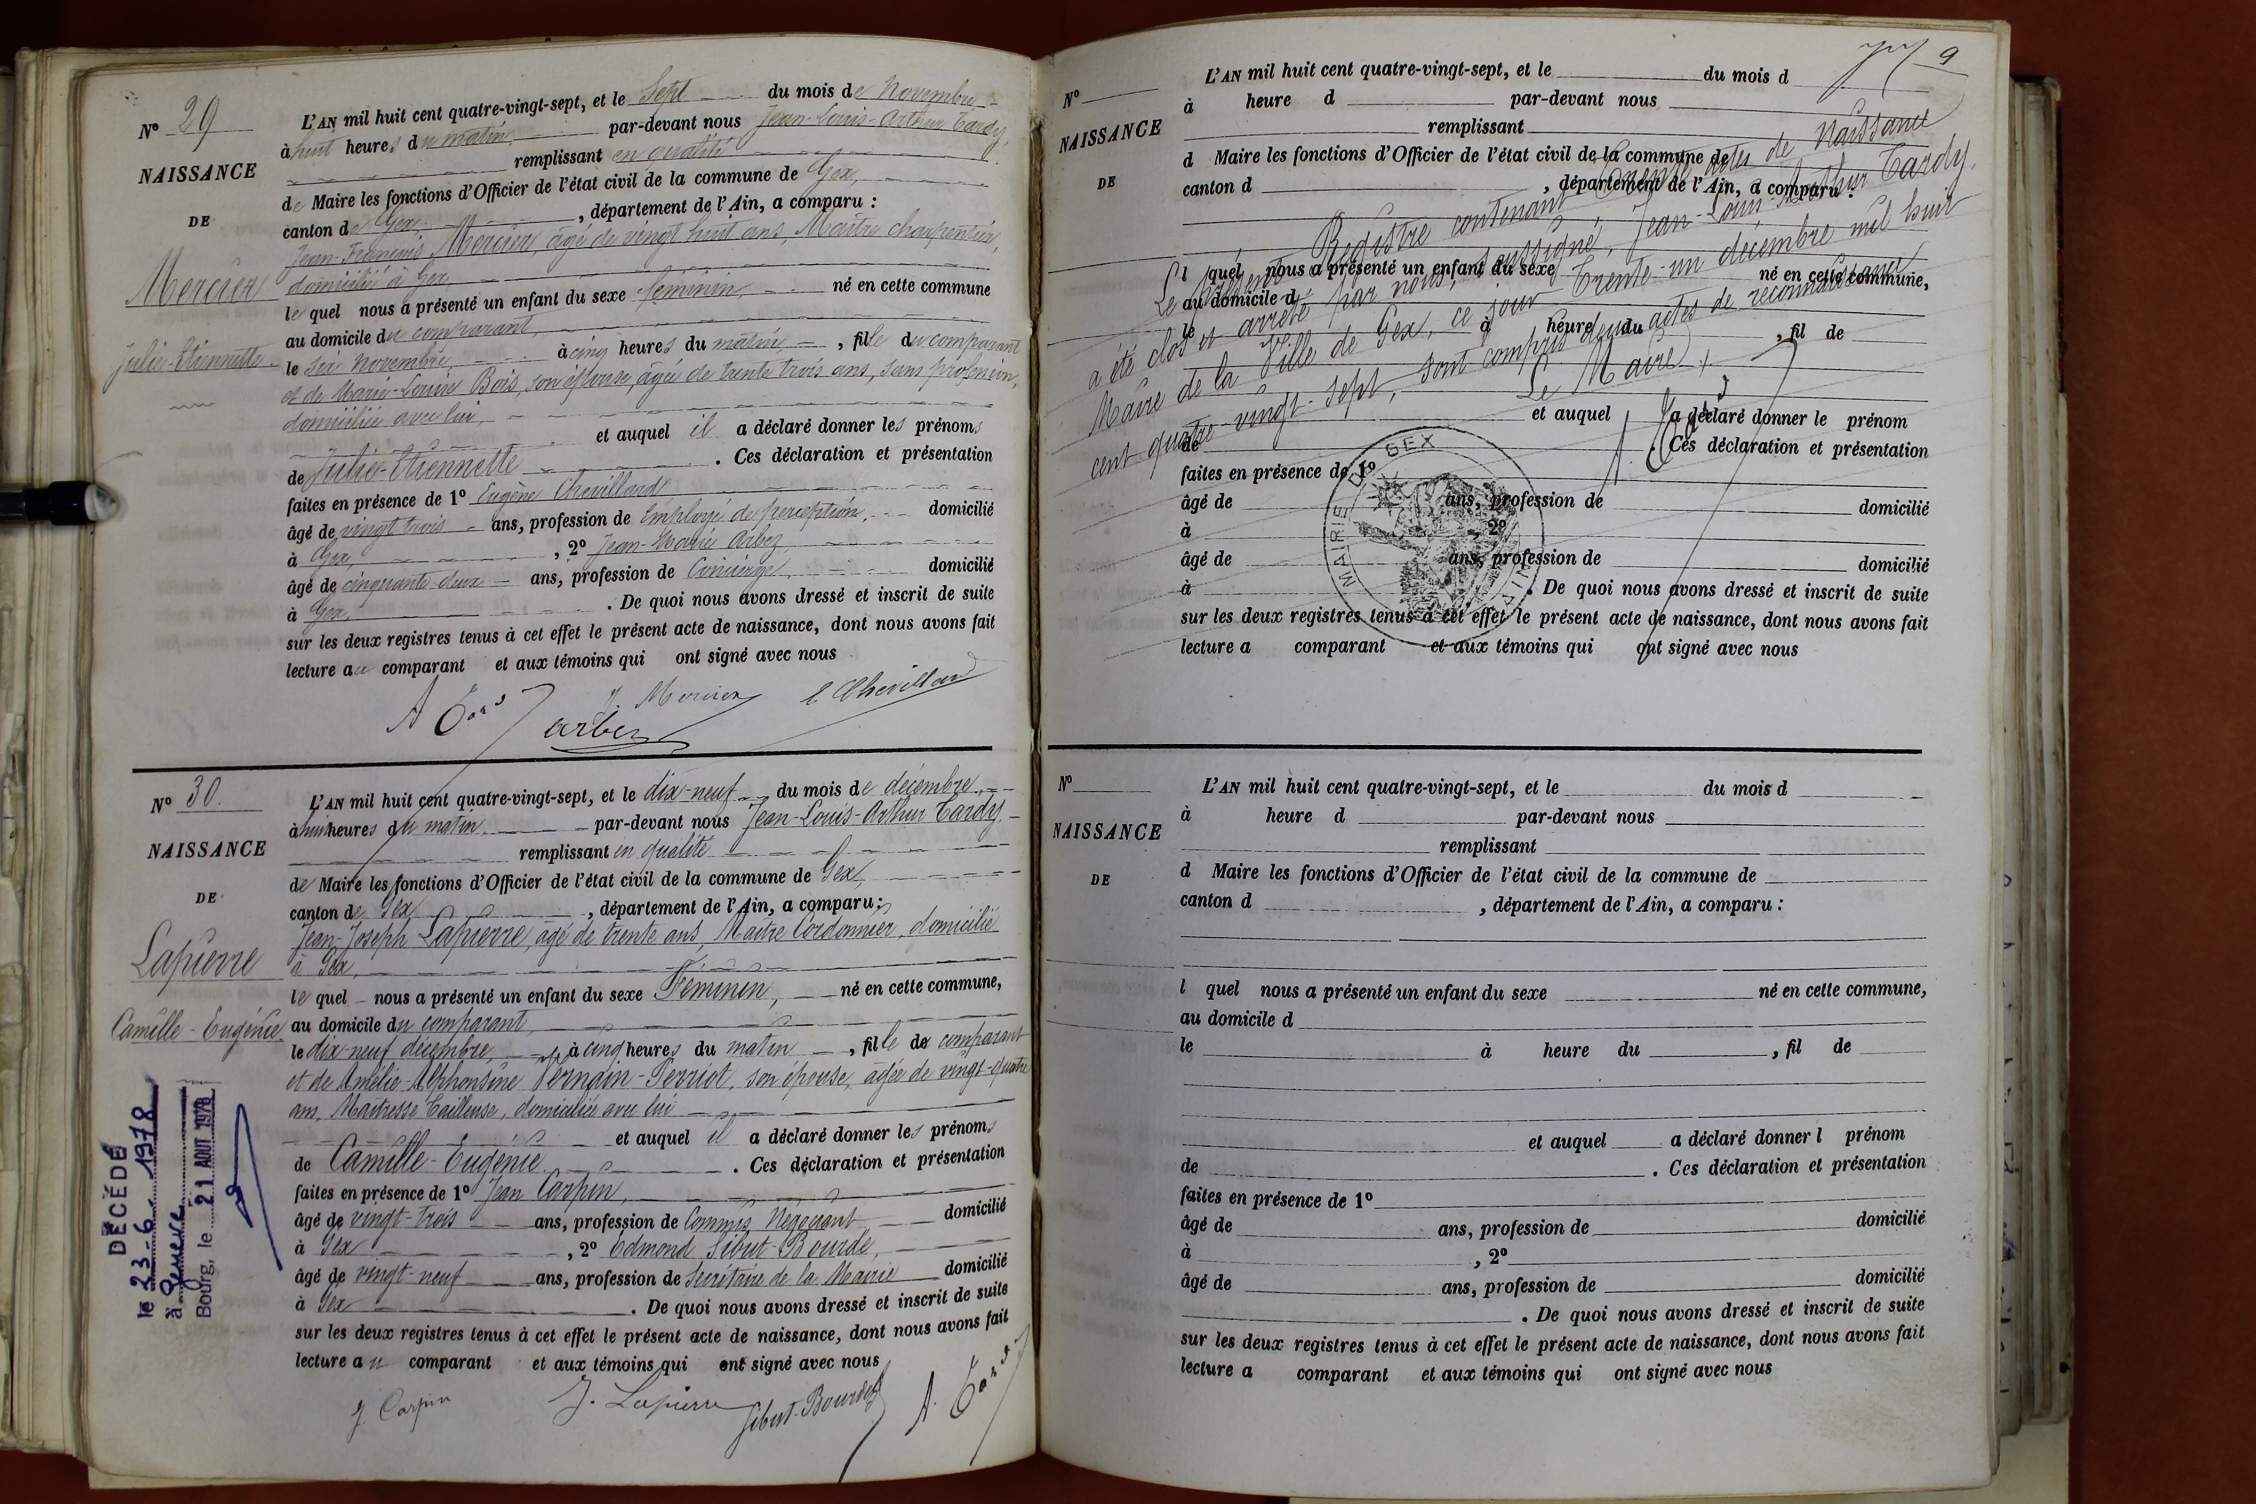 N° 29
NAISSANCE
DE
Mercier
Julie-Etiennette
L'AN mil huit cent quatre-vingt-sept, et le Sept du mois de Novembre
à huit heures du matin, par-devant nous Jean-Louis-Arthur Tardy,
remplissant en qualité
de Maire les fonctions d'Officier de l'état civil de la commune de Gex,
canton de Gex, département de l'Ain, a comparu :
Jean-François Mercier, âgé de vingt huit ans, Maître charpentier,
domicilié à Gex,
le quel nous a présenté un enfant du sexe féminin, né en cette commune
au domicile du comparant,
le six novembre à cinq heures du matin, fille du comparant
et de Marie-Louise Bois, son épouse, âgée de trente trois ans, sans profession,
domiciliée avec lui,
et auquel il a déclaré donner les prénoms
de Julie-Etiennette. Ces déclaration et présentation
faites en présence de 1° Eugène Chevillard
âgé de vingt trois ans, profession de Employé de perception, domicilié
à Gex, 2° Jean-Marie Arbez
âgé de cinquante deux ans, profession de Concierge, domicilié
à Gex. De quoi nous avons dressé et inscrit de suite
sur les deux registres tenus à cet effet le présent acte de naissance, dont nous avons fait
lecture au comparant et aux témoins qui ont signé avec nous
A Tardy J. Mercier E Chevillard
Arbez
N° 30.
NAISSANCE
DE
Lapierre
Camille-Eugénie
L'AN mil huit cent quatre-vingt-sept, et le dix-neuf du mois de décembre,
à huit heures du matin, par-devant nous Jean-Louis-Arthur Tardy,
remplissant en qualité
de Maire les fonctions d'Officier de l'état civil de la commune de Gex,
canton de Gex, département de l'Ain, a comparu :
Jean-Joseph Lapierre, âgé de trente ans, Maître Cordonnier, domicilié
à Gex,
le quel nous a présenté un enfant du sexe Féminin, né en cette commune,
au domicile du comparant,
le dix-neuf décembre, à cinq heures du matin, fille de comparant
et de Amélie-Alphonsine Vernain-Perriot, son épouse, âgée de vingt-quatre
ans, Maîtresse Tailleuse, domiciliée avec lui
et auquel il a déclaré donner les prénoms
de Camille-Eugénie. Ces déclaration et présentation
faites en présence de 1° Jean Carpin,
âgé de vingt-trois ans, profession de Commis Négociant domicilié
à Gex, 2° Edmond Sibut-Bourde,
âgé de vingt-neuf ans, profession de Secrétaire de la Mairie domicilié
à Gex. De quoi nous avons dressé et inscrit de suite
sur les deux registres tenus à cet effet le présent acte de naissance, dont nous avons fait
lecture au comparant et aux témoins qui ont signé avec nous
J. Carpin J. Lapierre Sibut-Bourde A. Tardy
DÉCÉDÉ
le 23-6-1978
à Genève
Bourg, le 21 AOUT 1978
9
N°
NAISSANCE
DE
L'AN mil huit cent quatre-vingt-sept, et le du mois d
à heure d par-devant nous
remplissant
d Maire les fonctions d'Officier de l'état civil de la commune de
canton d , département de l'Ain, a comparu :
l quel nous a présenté un enfant du sexe né en cette commune,
au domicile d
le à heure du , fil de
et auquel a déclaré donner le prénom
de . Ces déclaration et présentation
faites en présence de 1°
âgé de ans, profession de domicilié
à , 2°
âgé de ans, profession de domicilié
à . De quoi nous avons dressé et inscrit de suite
sur les deux registres tenus à cet effet le présent acte de naissance, dont nous avons fait
lecture a comparant et aux témoins qui ont signé avec nous
Le présent Registre contenant Trente actes de Naissance
a été clos et arrêté par nous, soussigné, Jean-Louis-Arthur Tardy,
Maire de la Ville de Gex, ce jour Trente-un décembre mil huit
cent quatre-vingt-sept, sont compris deux actes de reconnaissance
Le Maire,
A. Tardy
MAIRIE DE GEX
AIN
N°
NAISSANCE
DE
L'AN mil huit cent quatre-vingt-sept, et le du mois d
à heure d par-devant nous
remplissant
d Maire les fonctions d'Officier de l'état civil de la commune de
canton d , département de l'Ain, a comparu :
l quel nous a présenté un enfant du sexe né en cette commune,
au domicile d
le à heure du , fil de
et auquel a déclaré donner l prénom
de . Ces déclaration et présentation
faites en présence de 1°
âgé de ans, profession de domicilié
à , 2°
âgé de ans, profession de domicilié
. De quoi nous avons dressé et inscrit de suite
sur les deux registres tenus à cet effet le présent acte de naissance, dont nous avons fait
lecture a comparant et aux témoins qui ont signé avec nous